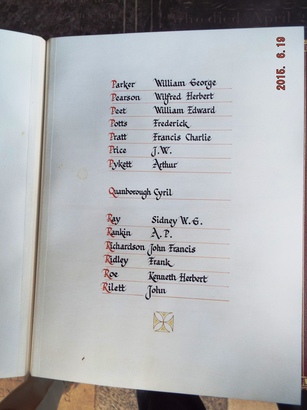 Parker William George
Pearson Wilfred Herbert
Peet William Edward
Potts Frederick
Pratt Francis Charlie
Price J.W.
Pykett Arthur
Quanborough Cyril
Ray Sidney W.G.
Rankin A.P.
Richardson John Francis
Ridley Frank
Roe Kenneth Herbert
Rilett John
2015. 6. 19